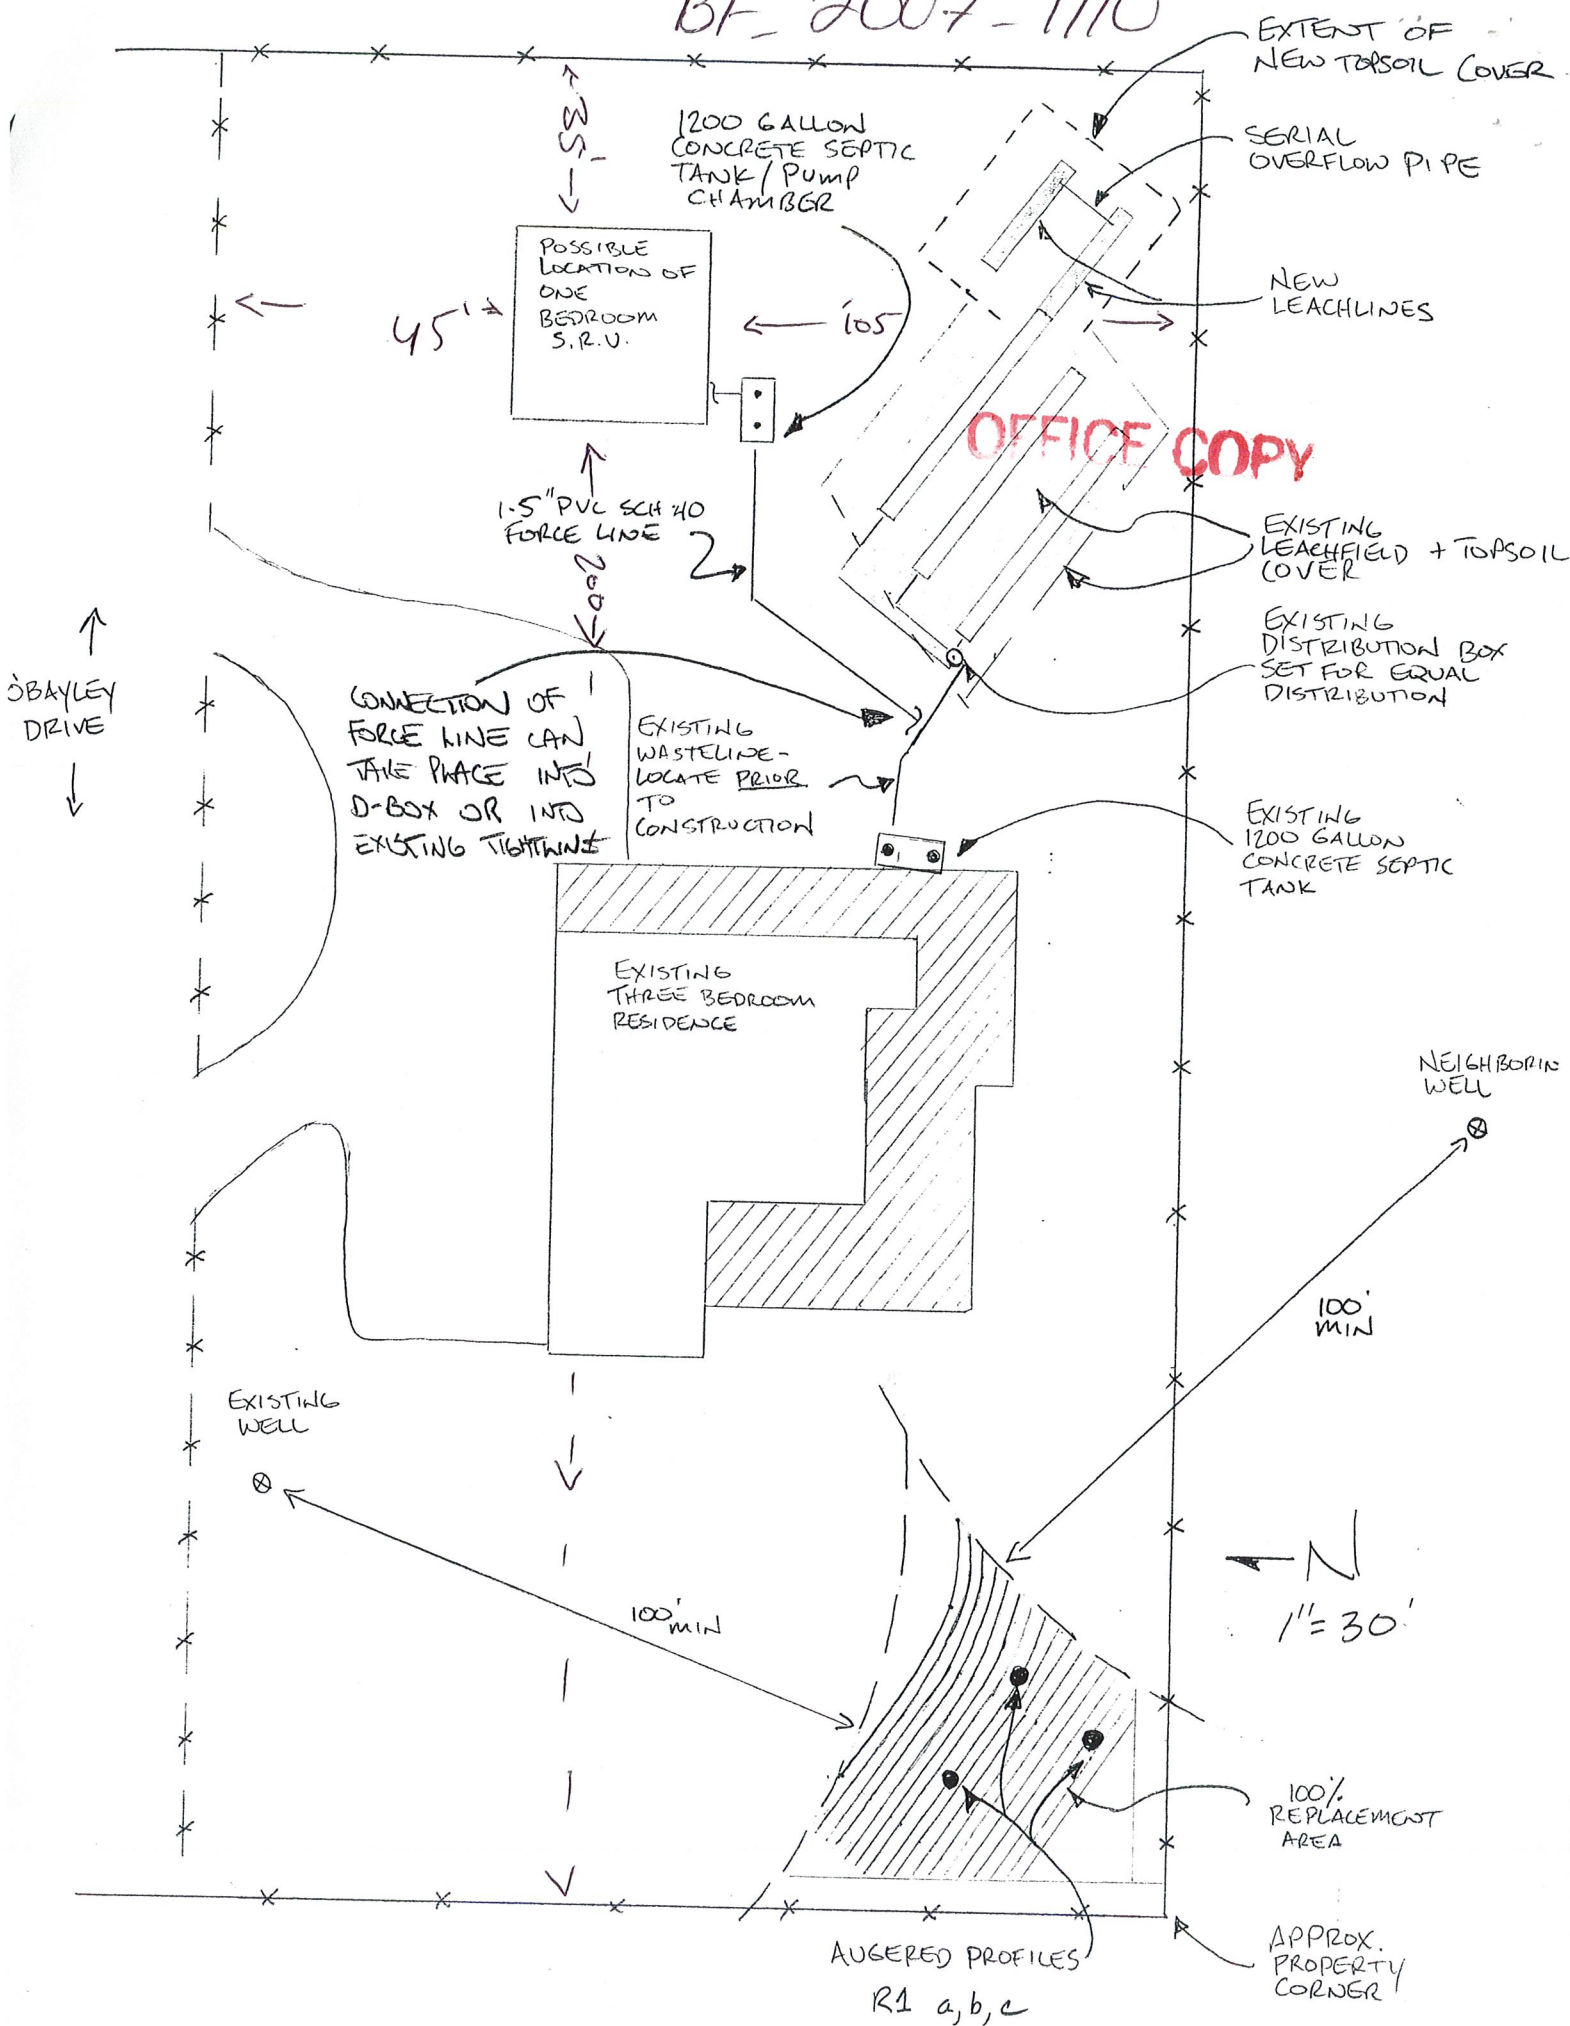 BF_2007-1110
EXTENT OF
NEW TOPSOIL COVER
35'
1200 GALLON
CONCRETE SEPTIC
TANK/PUMP
CHAMBER
SERIAL
OVERFLOW PIPE
POSSIBLE
LOCATION OF
ONE
BEDROOM
S.R.U.
45'
105
NEW
LEACHLINES
OFFICE COPY
1.5" PVC SCH 40
FORCE LINE
200
EXISTING
LEACHFIELD + TOPSOIL
COVER
EXISTING
DISTRIBUTION BOX
SET FOR EQUAL
DISTRIBUTION
BAYLEY
DRIVE
CONNECTION OF
FORCE LINE CAN
TAKE PLACE INTO
D-BOX OR INTO
EXISTING TIGHTLINE
EXISTING
WASTELINE-
LOCATE PRIOR
TO
CONSTRUCTION
EXISTING
1200 GALLON
CONCRETE SEPTIC
TANK
EXISTING
THREE BEDROOM
RESIDENCE
NEIGHBORIN
WELL
100'
MIN
EXISTING
WELL
100'
MIN
N
1"=30'
100%
REPLACEMENT
AREA
AUGERED PROFILES
R1 a,b,c
APPROX.
PROPERTY
CORNER